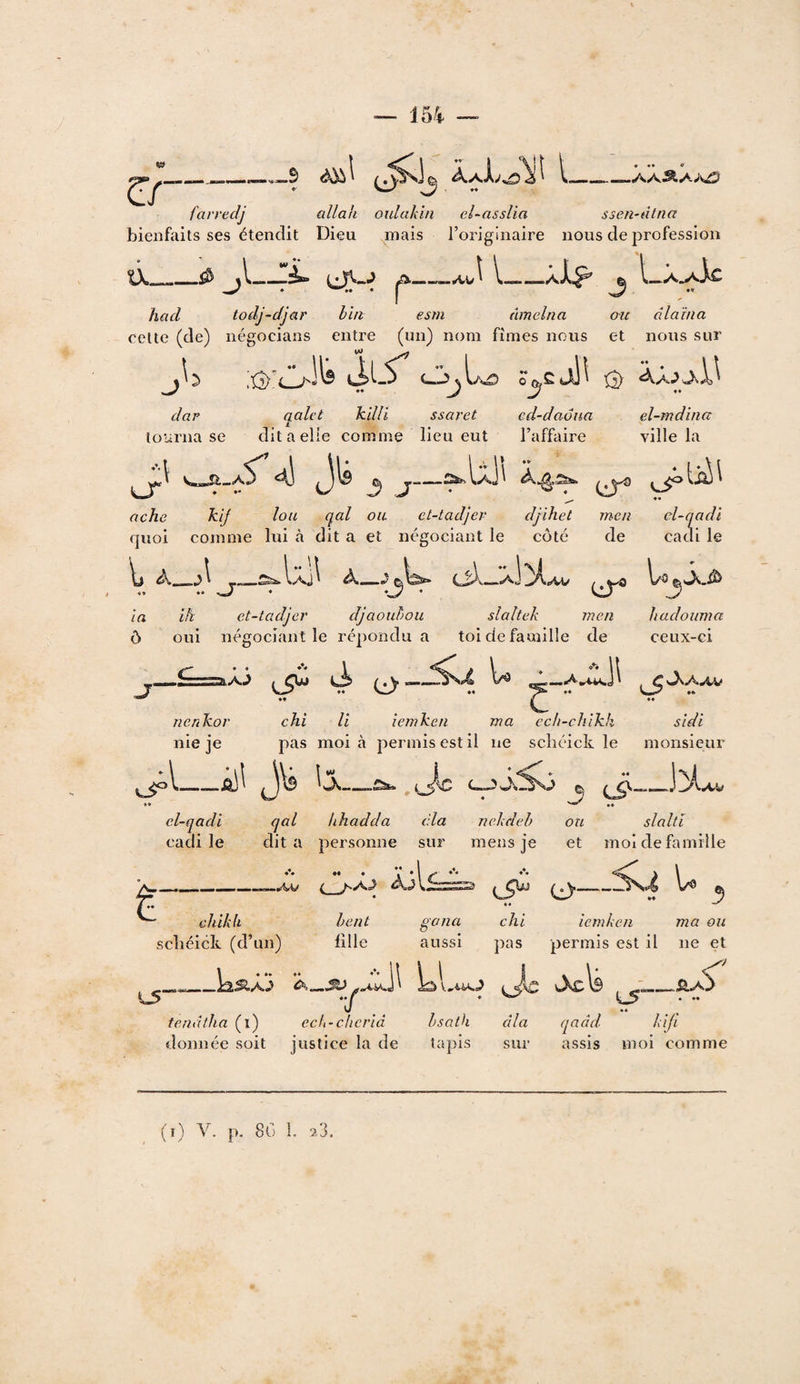 — 154 —
صنعتنا الاصلية ولكن الله فرج
farredj allah oulakin el-asslia ssen-âtna
bienfaits ses étendit Dieu mais l'originaire nous de profession
علينا و عملنا اسم بين تجار هذا
had todj-djar bin esm âmelna ou âlaïna
cette (de) négocians entre (un) nom fîmes nous et nous sur
المدينة الدعوة صارت كلي قالت دار
dar qalet killi ssaret ed-daôua el-mdina
tourna se dit a elle comme lieu eut l'affaire ville la
القاضي من جهة التاجر و قال له كيف اش
ache kif lou qal ou et-tadjer djihet men el-qadi
quoi comme lui à dit a et négociant le côté de cadi le
هذوما من سلالتك جاوبه التاجر ايه يا
ia ih et-tadjer djaoubou slaltek men hadouma
ô oui négociant le répondu a toi de famille de ceux-ci
سيدي الشيخ ما يمكن لي شي ننكر
nenkor chi li iemken ma ech-chikh sidi
nie je pas moi à permis est il ne schéick le monsieur
سلالتي و نكذب على حدا قال القاضي
el-qadi qal hhadda âla nekdeb ou slalti
cadi le dit a personne sur mens je et moi de famille
و ما يمكن شي كانه بنت شيخ
chikh bent gana chi iemken ma ou
schéick (d'un) fille aussi pas permis est il ne et
كيفي قاعد على بساط الشريعة تنعطى
tenâtha (1) ech-cheriâ bsath âla qaâd kifi
donnée soit justice la de tapis sur assis moi comme
(1) V. p. 86 l. 23.